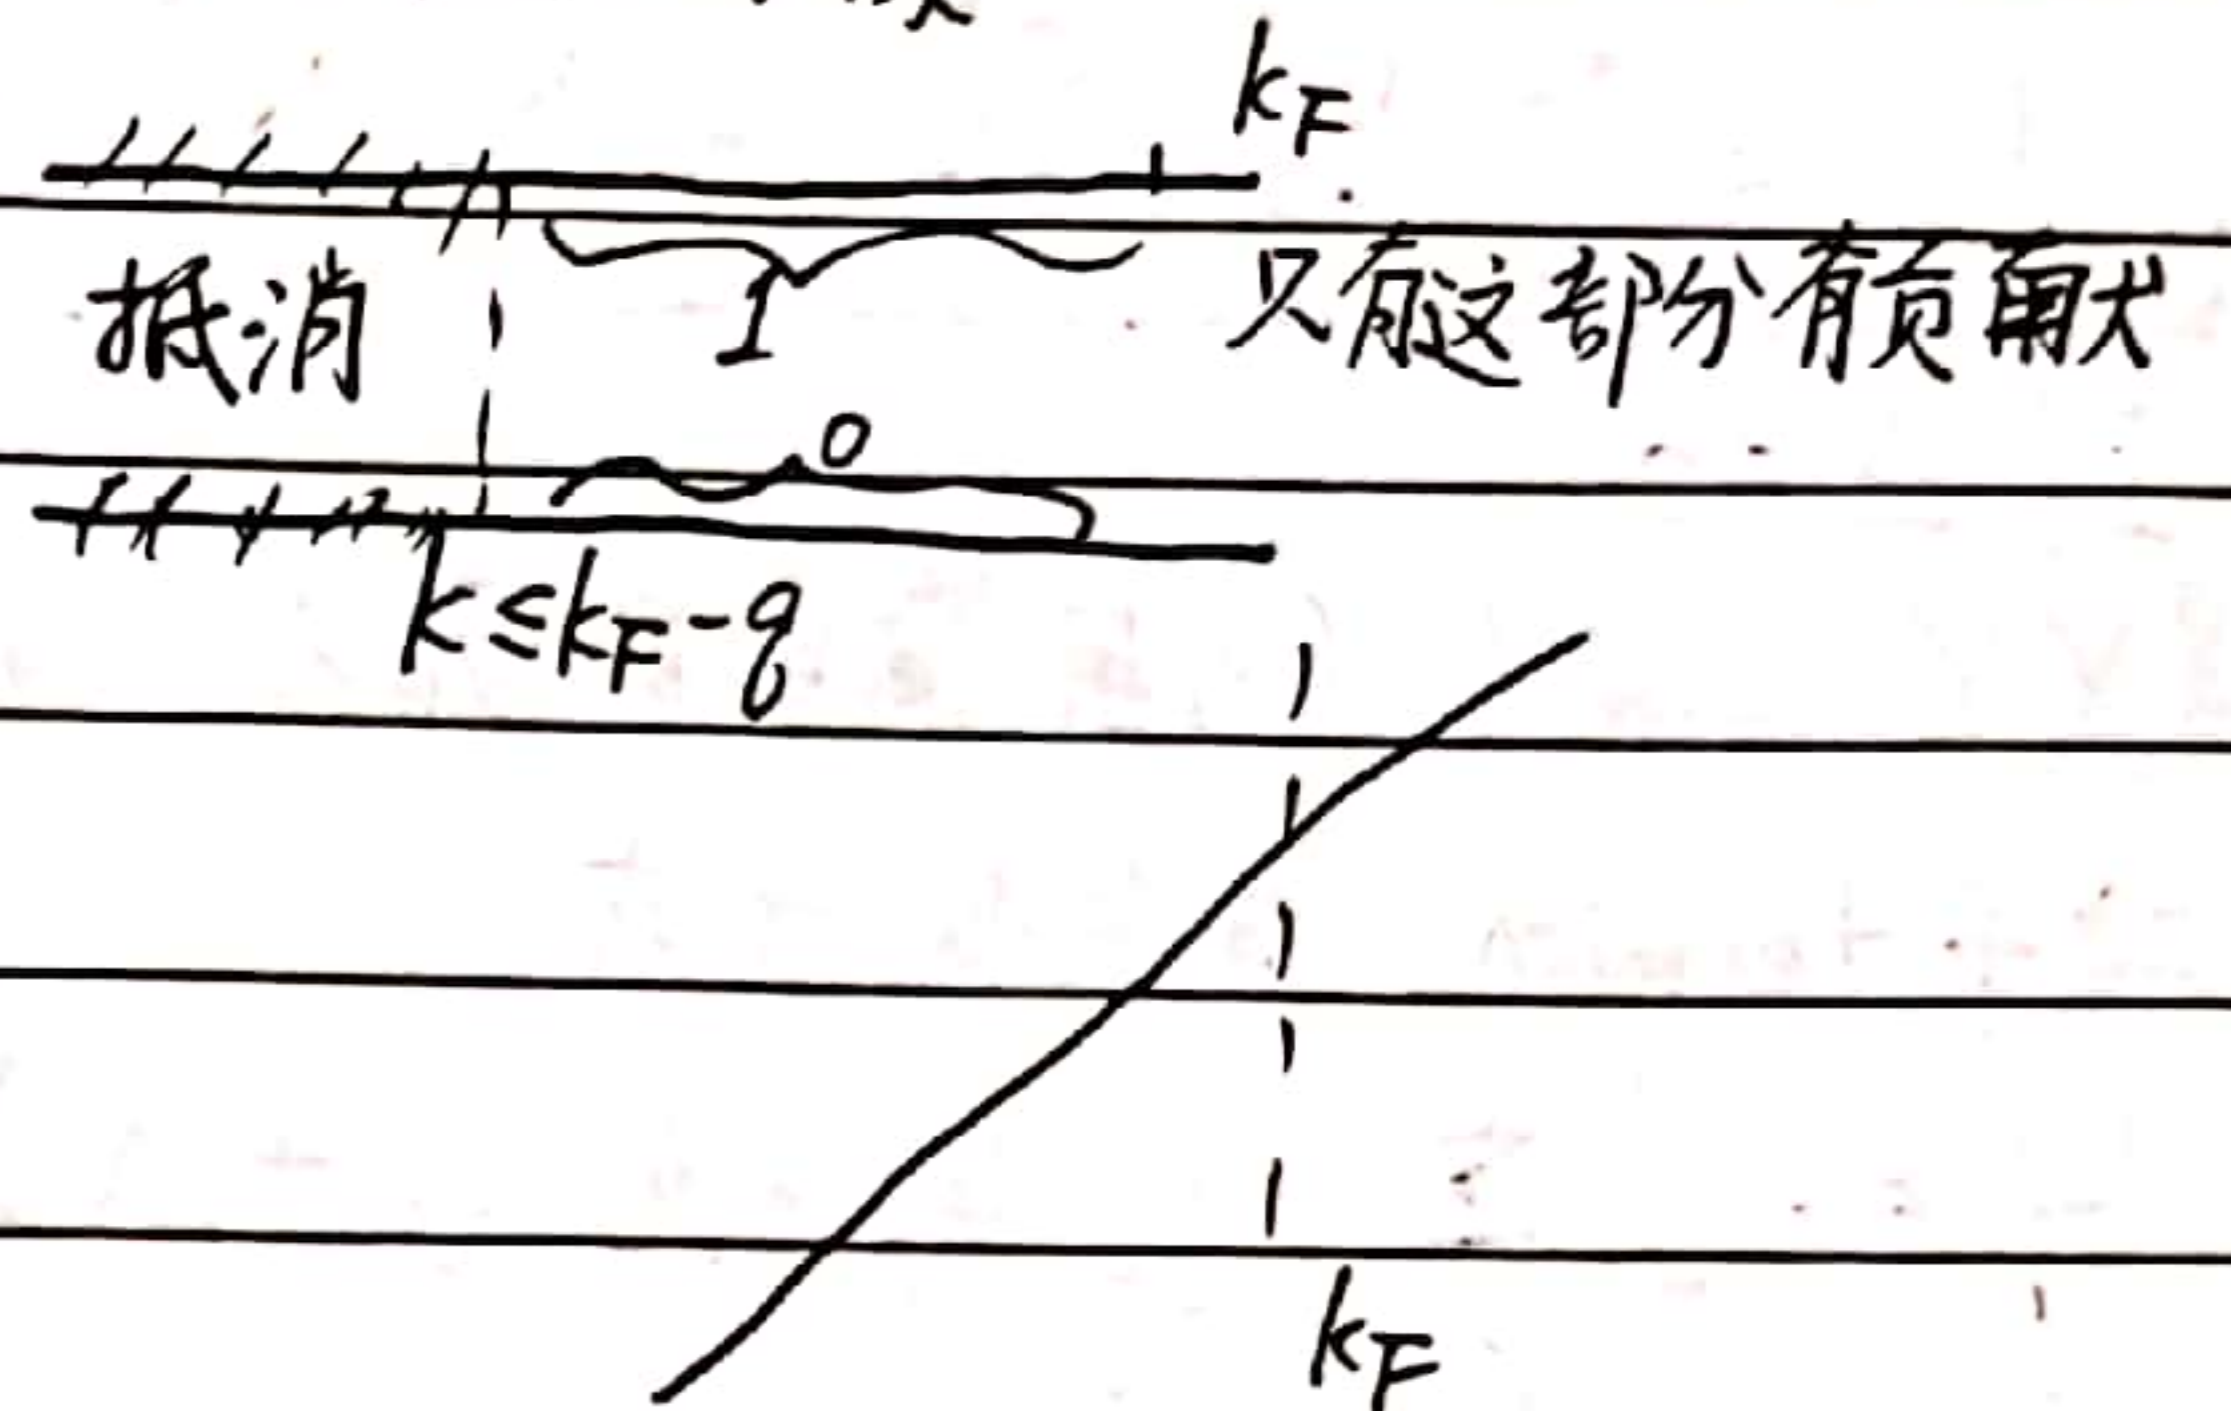 k_F
抵消 1 只有这部分有贡献
0
k≤k_F-q
k_F